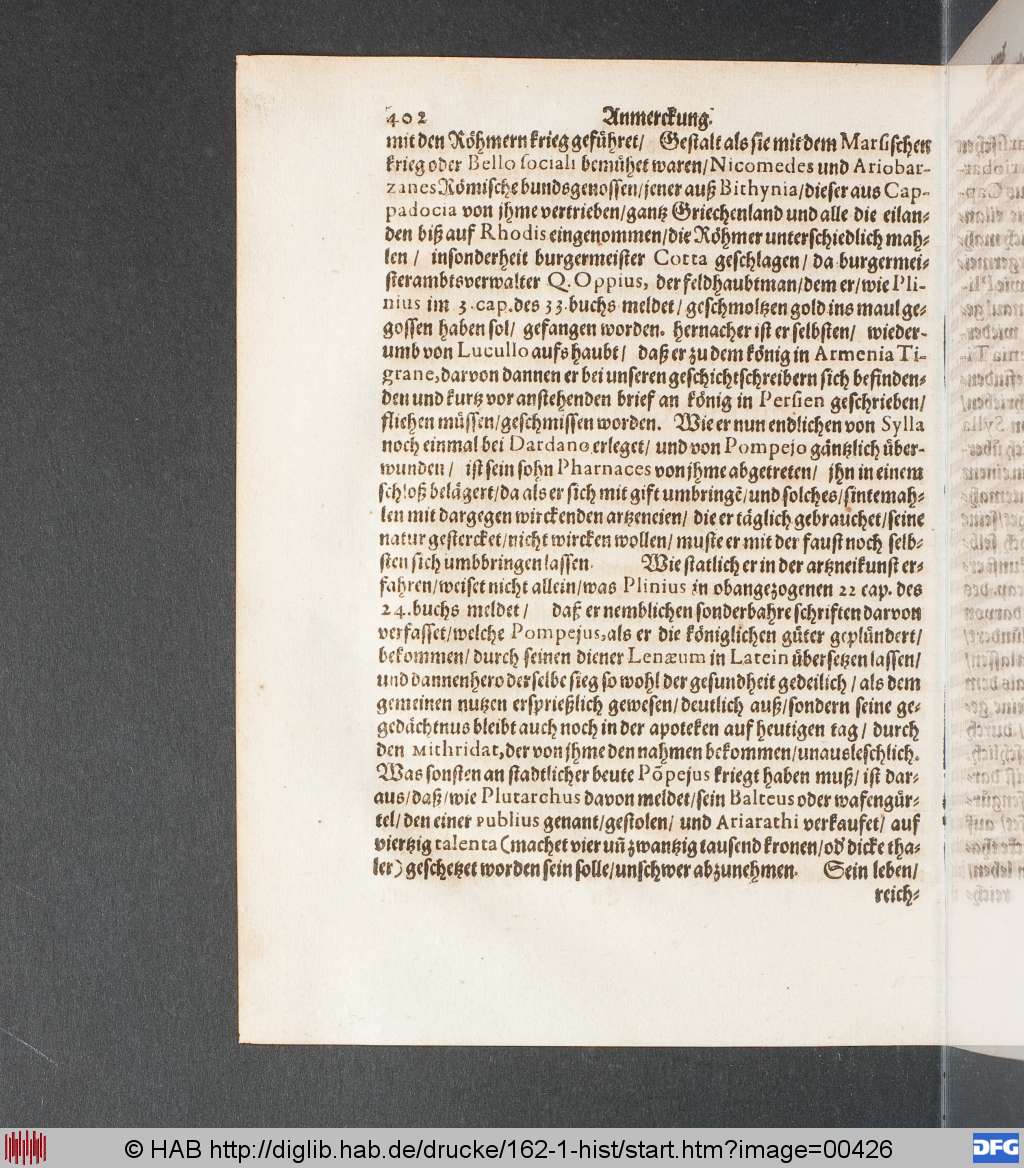 402 Anmerckung.
mit den Röhmern krieg geführet/ Gestalt als sie mit dem Marsischen
krieg oder Bello sociali bemühet waren/Nicomedes und Ariobar-
zanes Römische bundsgenossen/jener auß Bithynia/dieser aus Cap-
padocia von jhme vertrieben/gantz Griechenland und alle die eilan-
den biß auf Rhodis eingenommen/die Röhmer unterschiedlich mah-
len/ insonderheit burgermeister Cotta geschlagen/ da burgermei-
sterambtsverwalter Q. Oppius, der feldhaubtman/dem er/wie Pli-
nius im 3. cap. des 33. buchs meldet/ geschmoltzen gold ins maul ge-
gossen haben sol/ gefangen worden. hernacher ist er selbsten/ wieder-
umb von Lucullo aufs haubt/ daß er zu dem könig in Armenia Ti-
grane, darvon dannen er bei unseren geschichtschreibern sich befinden-
den und kurtz vor anstehenden brief an könig in Persien geschrieben/
fliehen müssen/geschmissen worden. Wie er nun endlichen von Sylla
noch einmal bei Dardano erleget/ und von Pompejo gäntzlich über-
wunden/ ist sein sohn Pharnaces von jhme abgetreten/ jhn in einem
schloß belägert/da als er sich mit gift umbringē/und solches/sintemah-
len mit dargegen wirckenden artzeneien/ die er täglich gebrauchet/seine
natur gestercket/nicht wircken wollen/ muste er mit der faust noch selb-
sten sich umbbringen lassen. Wie statlich er in der artzneikunst er-
fahren/weiset nicht allein/was Plinius in obangezogenen 22 cap. des
24. buchs meldet/ daß er nemblichen sonderbahre schriften darvon
verfasset/welche Pompejus, als er die königlichen güter geplündert/
bekommen/durch seinen diener Lenæum in Latein übersetzen lassen/
und dannenhero derselbe sieg so wohl der gesundheit gedeilich/als dem
gemeinen nutzen ersprießlich gewesen/deutlich auß/sondern seine ge-
gedächtnus bleibt auch noch in der apoteken auf heutigen tag/ durch
den Mithridat, der von jhme den nahmen bekommen/unausleschlich.
Was sonsten an stadtlicher beute Põpejus kriegt haben muß/ ist dar-
aus/daß/wie Plutarchus davon meldet/sein Balteus oder wafengür-
tel/den einer Publius genant/gestolen/ und Ariarathi verkaufet/ auf
viertzig talenta (machet vier uñ zwantzig tausend kronen/od' dicke tha-
ler) geschetzet worden sein solle/unschwer abzunehmen. Sein leben/
reich-
© HAB http://diglib.hab.de/drucke/162-1-hist/start.htm?image=00426
DFG